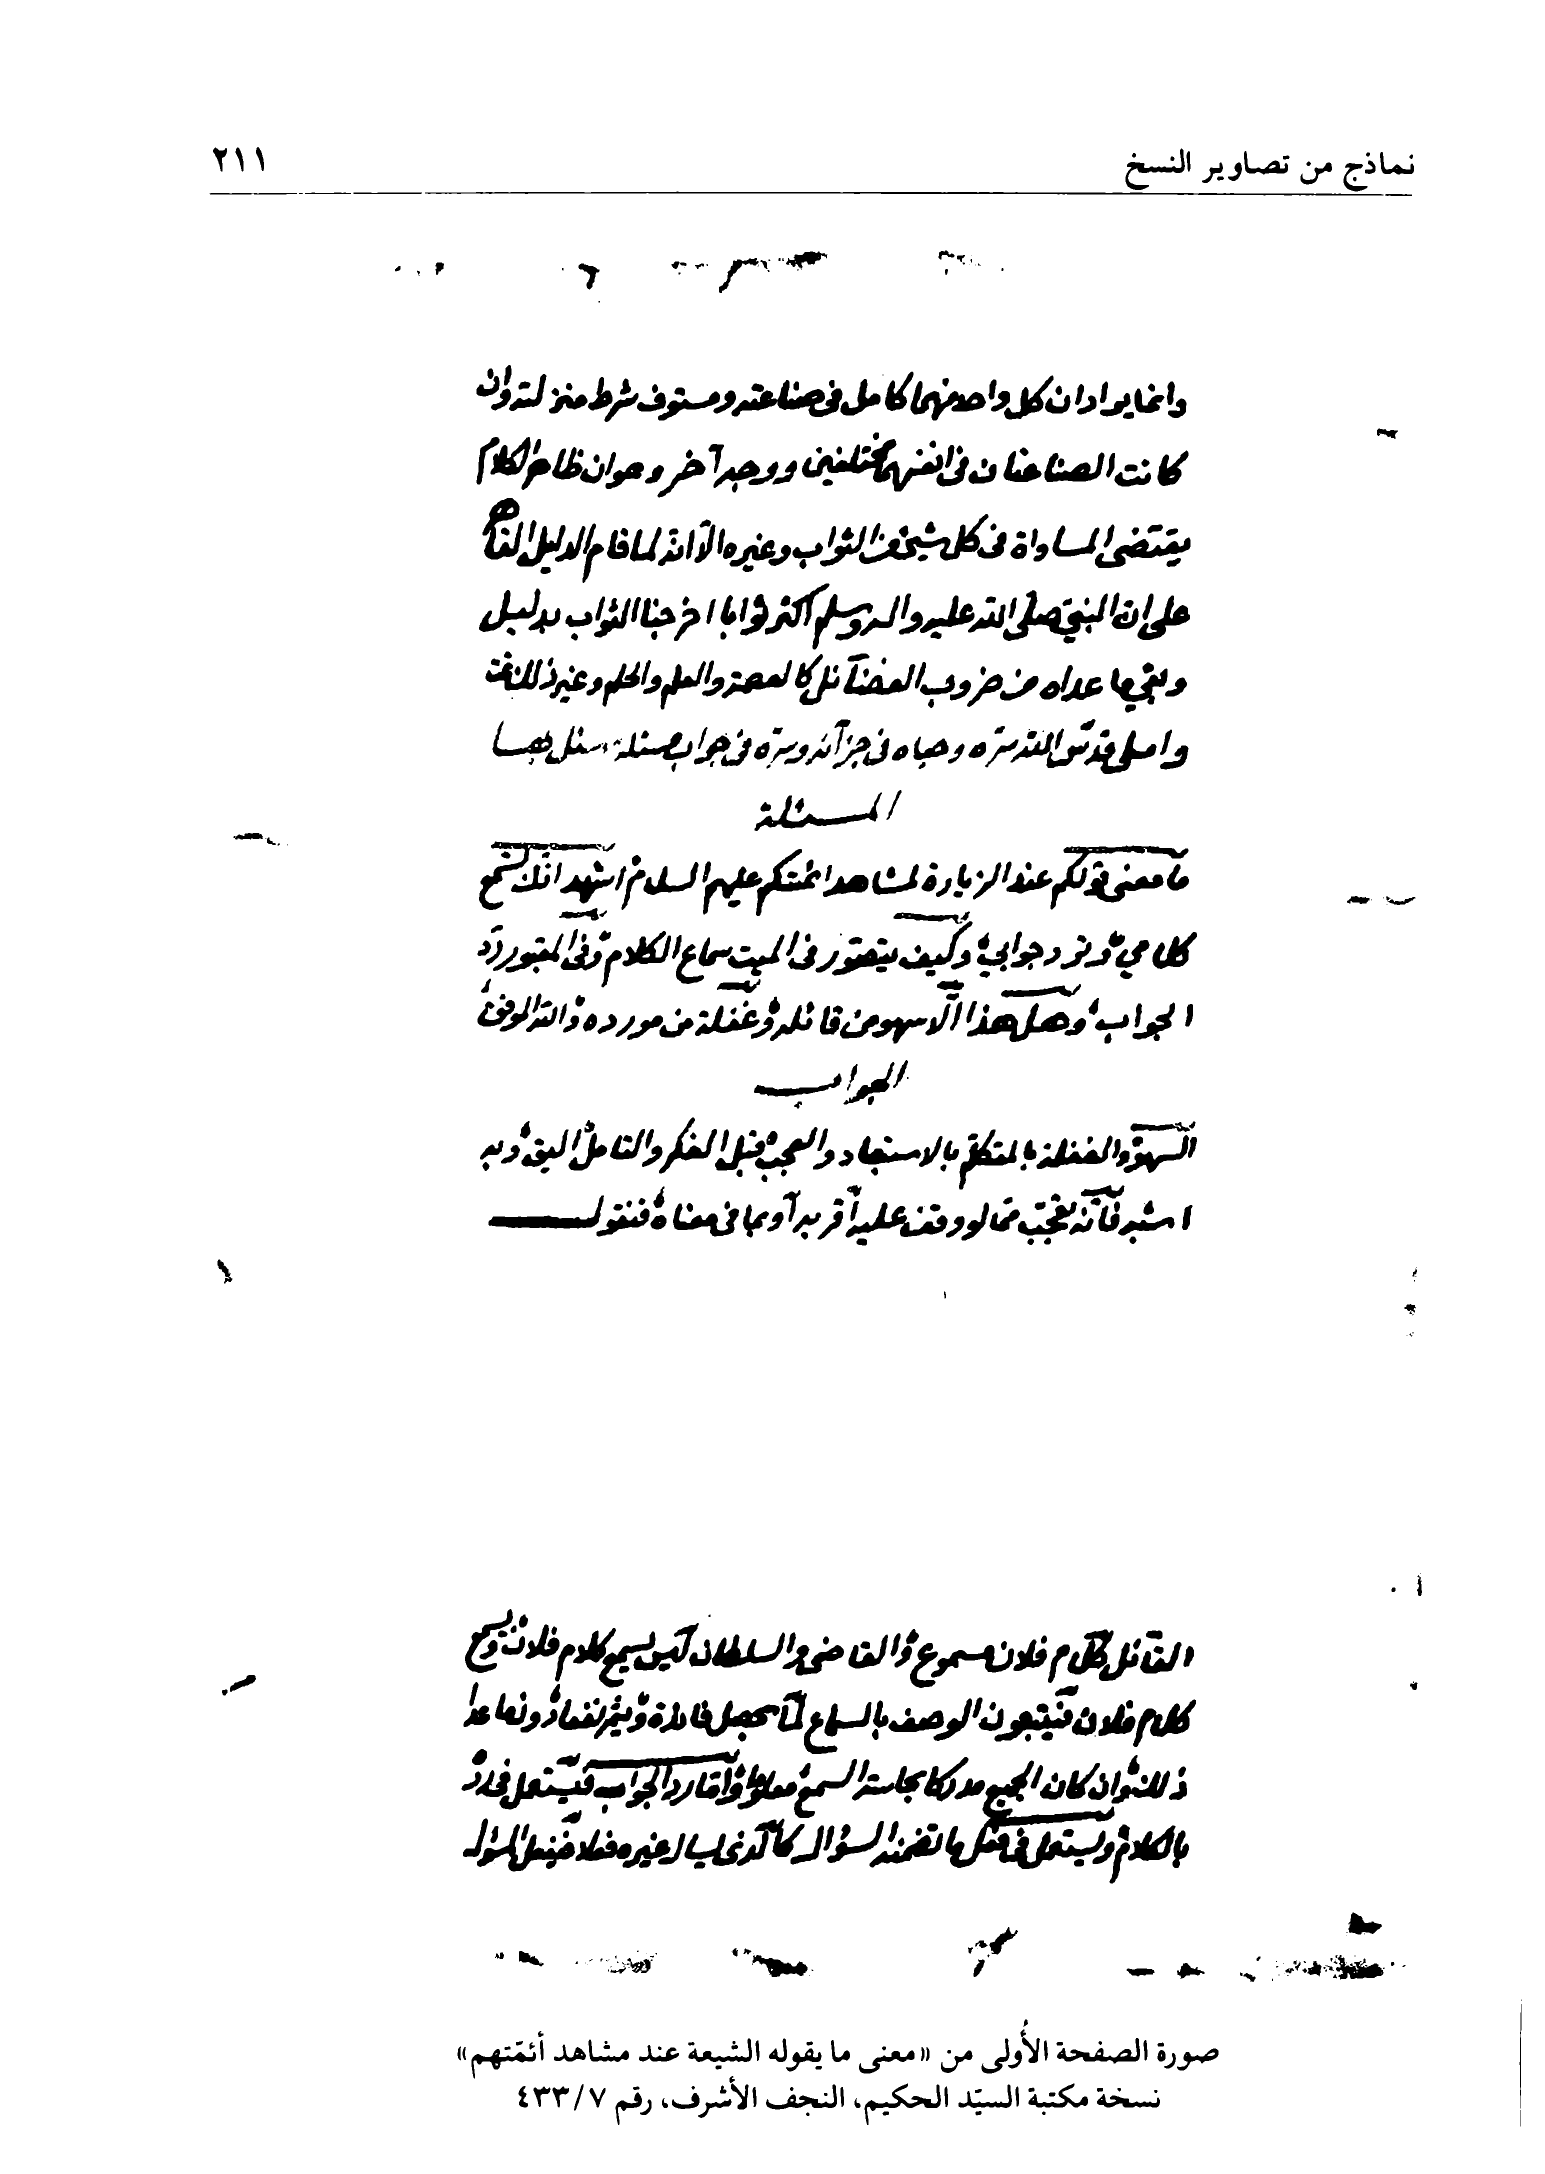 نماذج من تصاوير النسخ ٢١١
وانما يراد ان كل واحد منهما كامل فى صناعته ومستوف شرط منزلته وان
كانت الصناعتان فى انفسهما مختلفين ووجه آخر وهو ان ظاهر الكلام
يقتضى المساواة فى كل شيئ من الثواب وغيره الا انه لما قام الدليل القاهر
على ان النبي صلى الله عليه واله وسلم اكثر ثوابا اخرجنا الثواب بدليل
وبقي ما عداه من ضروب الفضآئل كالعصمة والعلم والحلم وغير ذلك
واملى قدّس الله سرّه وحباه فى جزآئه وسرّه فى جواب مسئلة سئل بها
المسئلة
ما معنى قولكم عند الزيارة لمشاهد ائمتكم عليهم السلام اشهد انّك تسمع
كلامي وترد جوابي وكيف يتصوّر فى الميت سماع الكلام وفى المقبور ردّ
الجواب وهل هذا الّا سهو من قائله وغفلة من مورده والله الموفق
الجواب
السهو والغفلة بالمتكلّم بالاستبعاد والعجب قبل الفكر والتامل اليق وبه
اشبه فانّه تعجّب ممّا لو وقف عليه أقر به آو بما فى معناه فنقول
القآئل كلام فلان مسموع والقاضى والسلطان ليس يسمع كلام فلان ويسمع
كلام فلان فيثبتون الوصف بالسماع لما يحصل فائدة ويثمر نفعا دون ما عدا
ذلك وان كان الجميع مدركا بحاسة السمع معلوما وأمّا رد الجواب فيستعمل فى ردّ
بالكلام ويستعمل فى فعل ما تضمنه السؤال كالّذى يسال غيره فعلا فيفعل المسؤل
صورة الصفحة الأُولى من «معنى ما يقوله الشيعة عند مشاهد أئمّتهم»
نسخة مكتبة السيّد الحكيم، النجف الأشرف، رقم ٤٣٣/٧